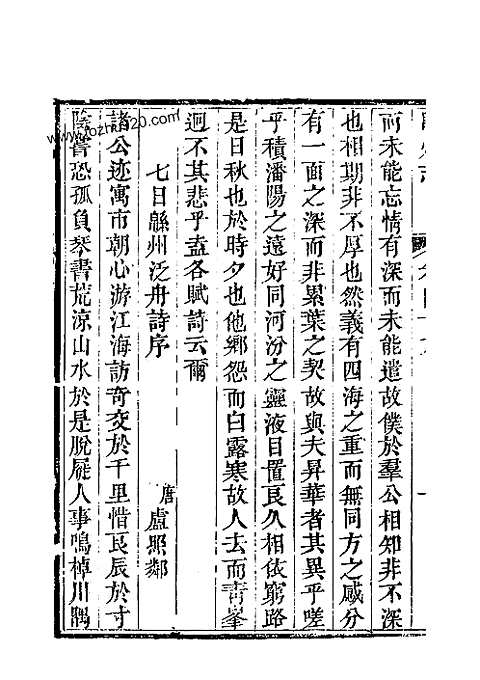 而未能忘情有深而未能遣故僕於羣公相知非不深
也相期非不厚也然義有四海之重而無同方之感分
有一面之深而非累葉之契故與夫昇華者其異乎嗟
乎積潘陽之遠好同河汾之靈液目置良久相依窮路
是日秋也於時夕也他鄉怨而白露寒故人去而青峯
迥不其悲乎盍各賦詩云爾
七日緜州泛舟詩序
唐盧照鄰
諸公迹寓市朝心游江海訪奇交於千里惜良辰於寸
陰嘗恐孤負琴書荒涼山水於是脫屣人事鳴棹川隅